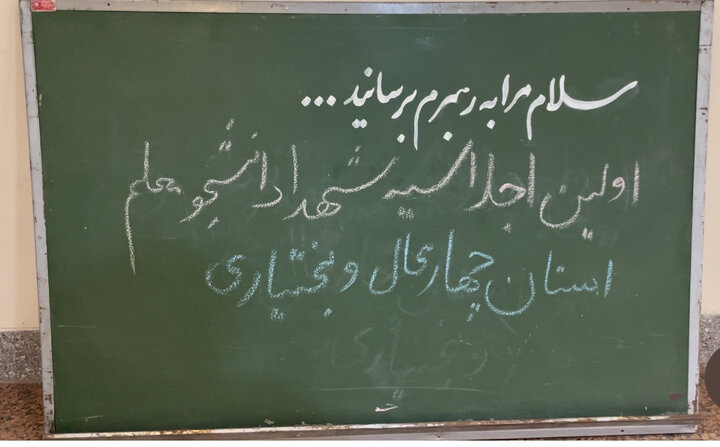 سلام مرا به رهبرم برسانید ...
اولین اجلاسیه شهدا دانشجو معلم
استان چهارمحال و بختیاری
و بختیاری